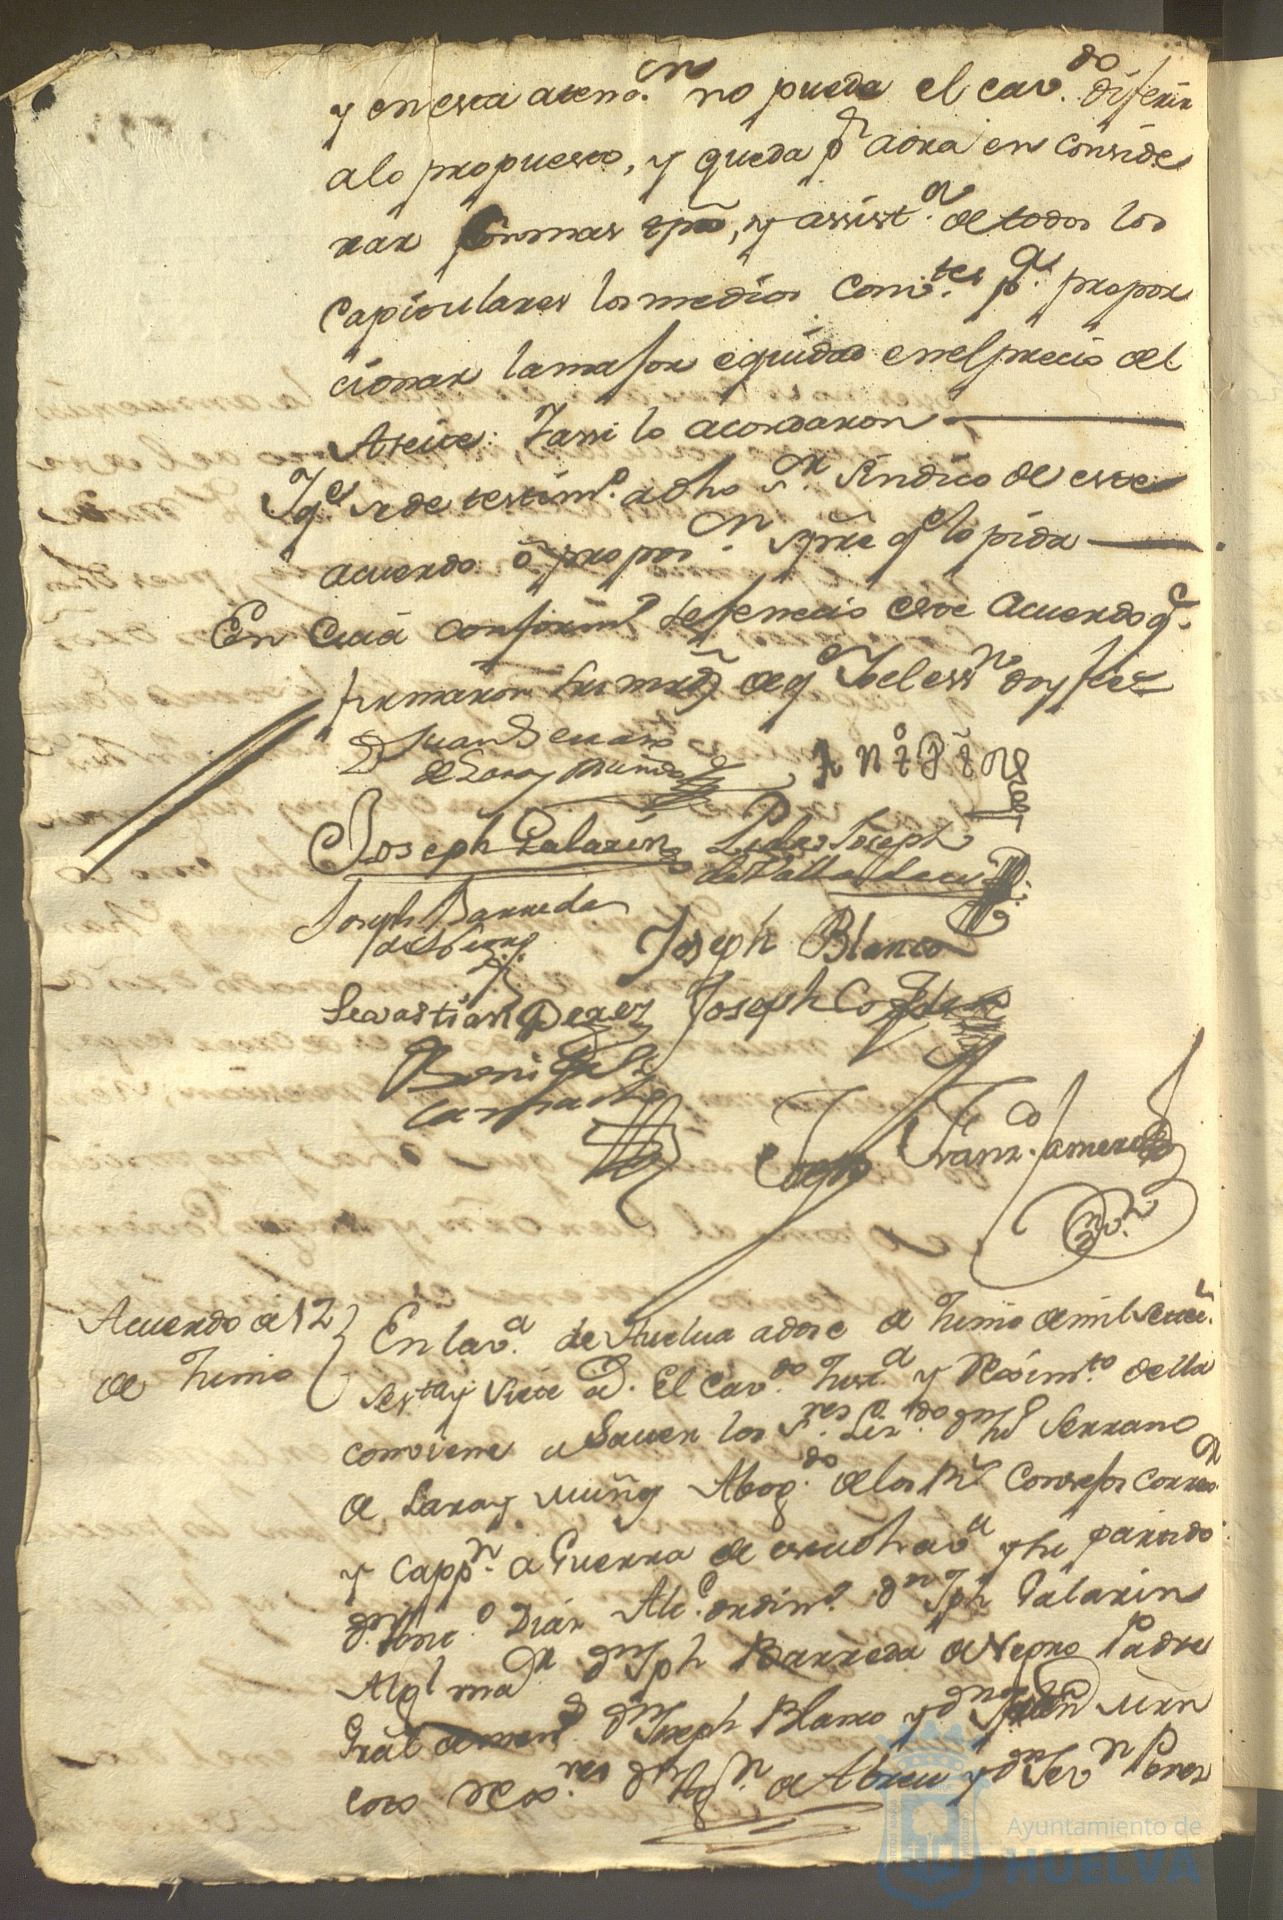 y en esta atenc.on no puede el cav.do diferir
alo propuesto, y queda p.r aora en conside
rar formar tpō, y assist.a de todos los
capitulares los medios conv.tes p.a propor
cionar la maior equidad en el precio del
Aseite: Y assi lo acordaron
Y q.e se de testim.o a dho s.r sindico de este
acuerdo ô propos.on spre q.e lo pida
En cuia conformd se fenecio este Acuerdo q.e
firmaron sus mrds de q.e Yo el ess.no doy fee
D Juan Serrano
de Lara y Muñoz
Joseph Galarin
Pedro Joseph
Joseph Barreda
Joseph Blanco
Sevastian Perez
Joseph
Joseph Franz.co Camero
Acuerdo de 12
de Junio
En la v.a de Huelva a dose de Junio de mil setec.s
ses.ta y siete a.s El Cav.do Just.a y Reximt.o de ella
combiene a saver los s.res Liz.do dn Jn Serrano
de Lara y Muñoz Abog.do de los Rs Consejos Corre.or
y Capp.n a Guerra de esta dha v.a y su partido
dn Ant.o Diaz Alc.e ordin.o dn Jph Galarin
Alg.l ma.r dn Jph Barreda de Negro Padre
Gral de men.s dn Joseph Blanco y dn
cos Rex.res dn de Abreu y dn Sev.n Perez
Ayuntamiento de
HUELVA